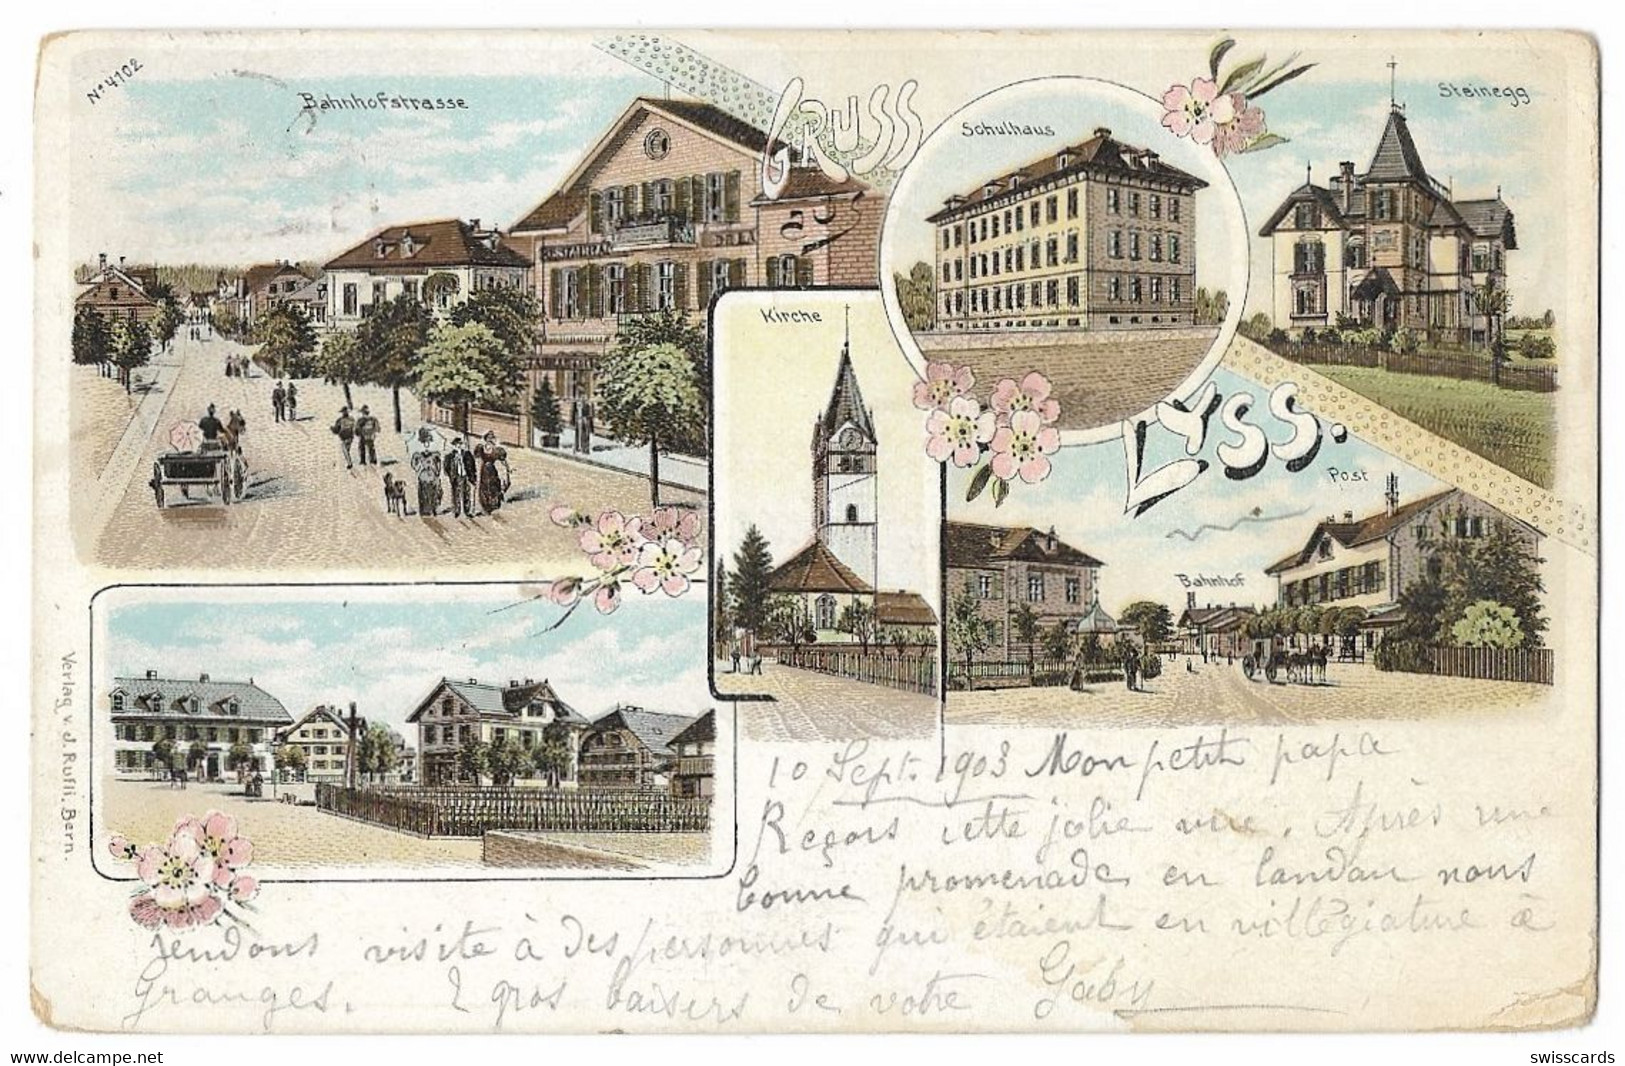 Nº 4102
Bahnhofstrasse
Gruss
aus
Schulhaus
Steinegg
Kirche
Lyss.
Post
Bahnhof
Verlag v. J. Rüfli, Bern.
10 Sept. 1903 Mon petit papa
Reçois cette jolie vue. Après une
bonne promenade en landau nous
rendons visite à des personnes qui étaient en villégiature à
Granges. 2 gros baisers de votre Gaby
swisscards